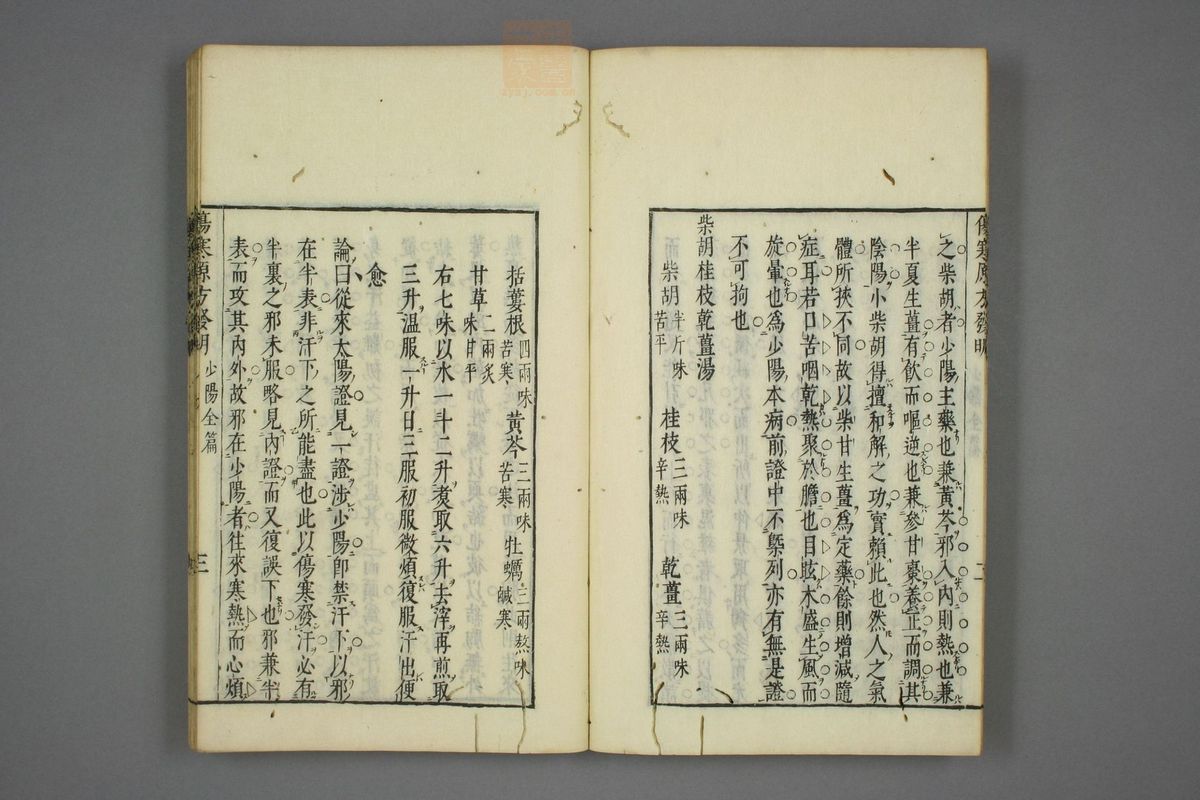 傷寒原方發明
之柴胡者少陽主藥也兼黃芩邪入內則熱也兼
半夏生薑有飲而嘔逆也兼參甘棗養正而調其
陰陽小柴胡得擅和解之功實賴此也然人之氣
體所挾不同故以柴甘生薑爲定藥餘則增減隨
症耳若口苦咽乾熱聚於膽也目眩木盛生風而
旋暈也爲少陽本病前證中不槩列亦有無是證
不可狥也
柴胡桂枝乾薑湯
柴胡半斤味苦平 桂枝三兩味辛熱 乾薑三兩味辛熱
括蔞根四兩味苦寒 黃芩三兩味苦寒 牡蠣三兩熬味鹹寒
甘草二兩炙味甘平
右七味以水一斗二升煑取六升去滓再煎取
三升溫服一升日三服初服微煩復服汗出便
愈
論曰從來太陽證見一證涉少陽卽禁汗下以邪
在半表非汗下之所能盡也此以傷寒發汗必有
半裏之邪未服略見內證而又復誤下也邪兼半
表而攻其內外故邪在少陽者往來寒熱而心煩
傷寒原方發明 少陽全篇 三